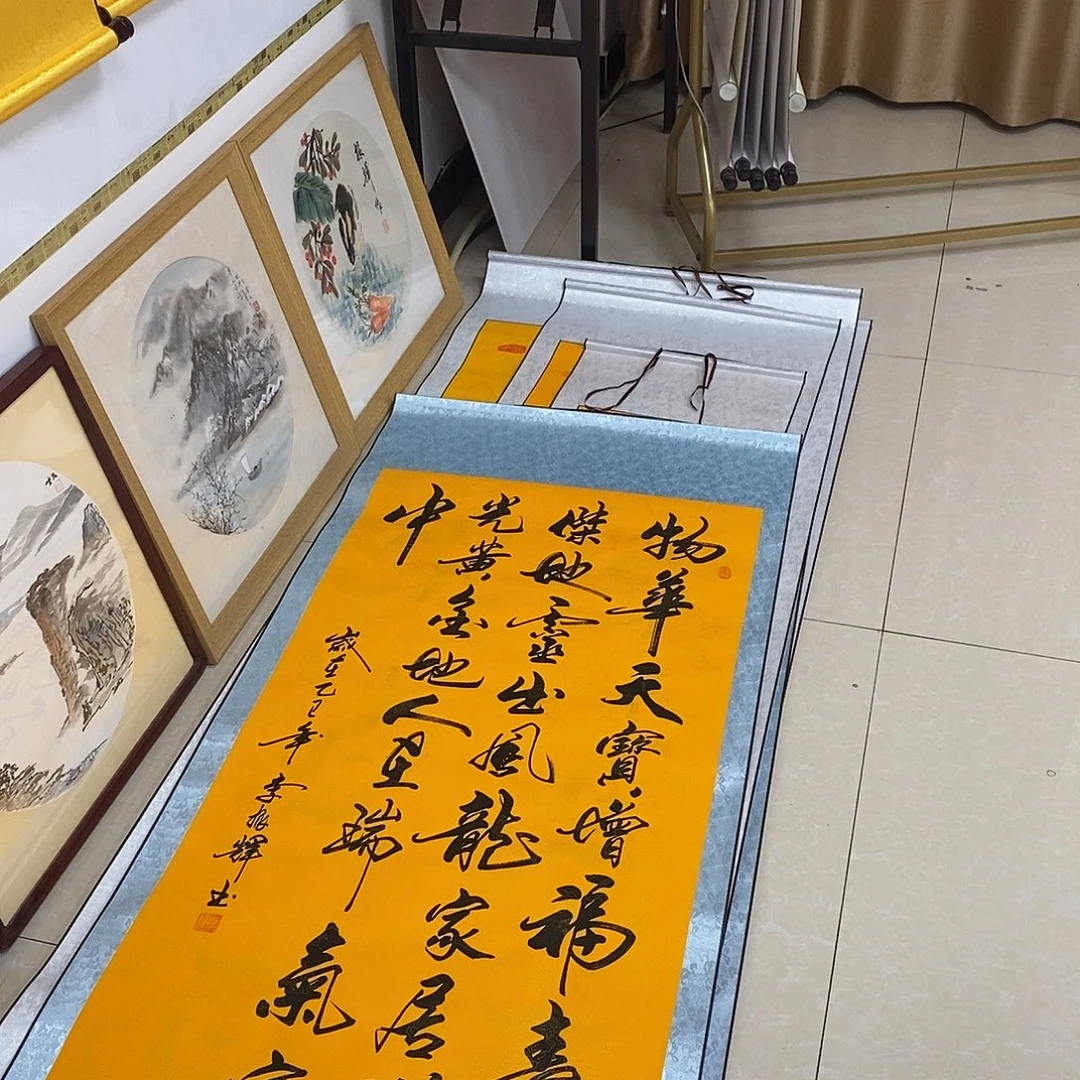 物華天寶增福壽
傑地靈出鳳龍家居
光黃金地人在瑞氣
中
歲在乙巳年 李振輝书